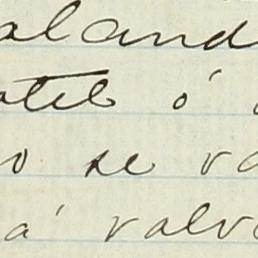 aland
atel ó
o se va
a valv